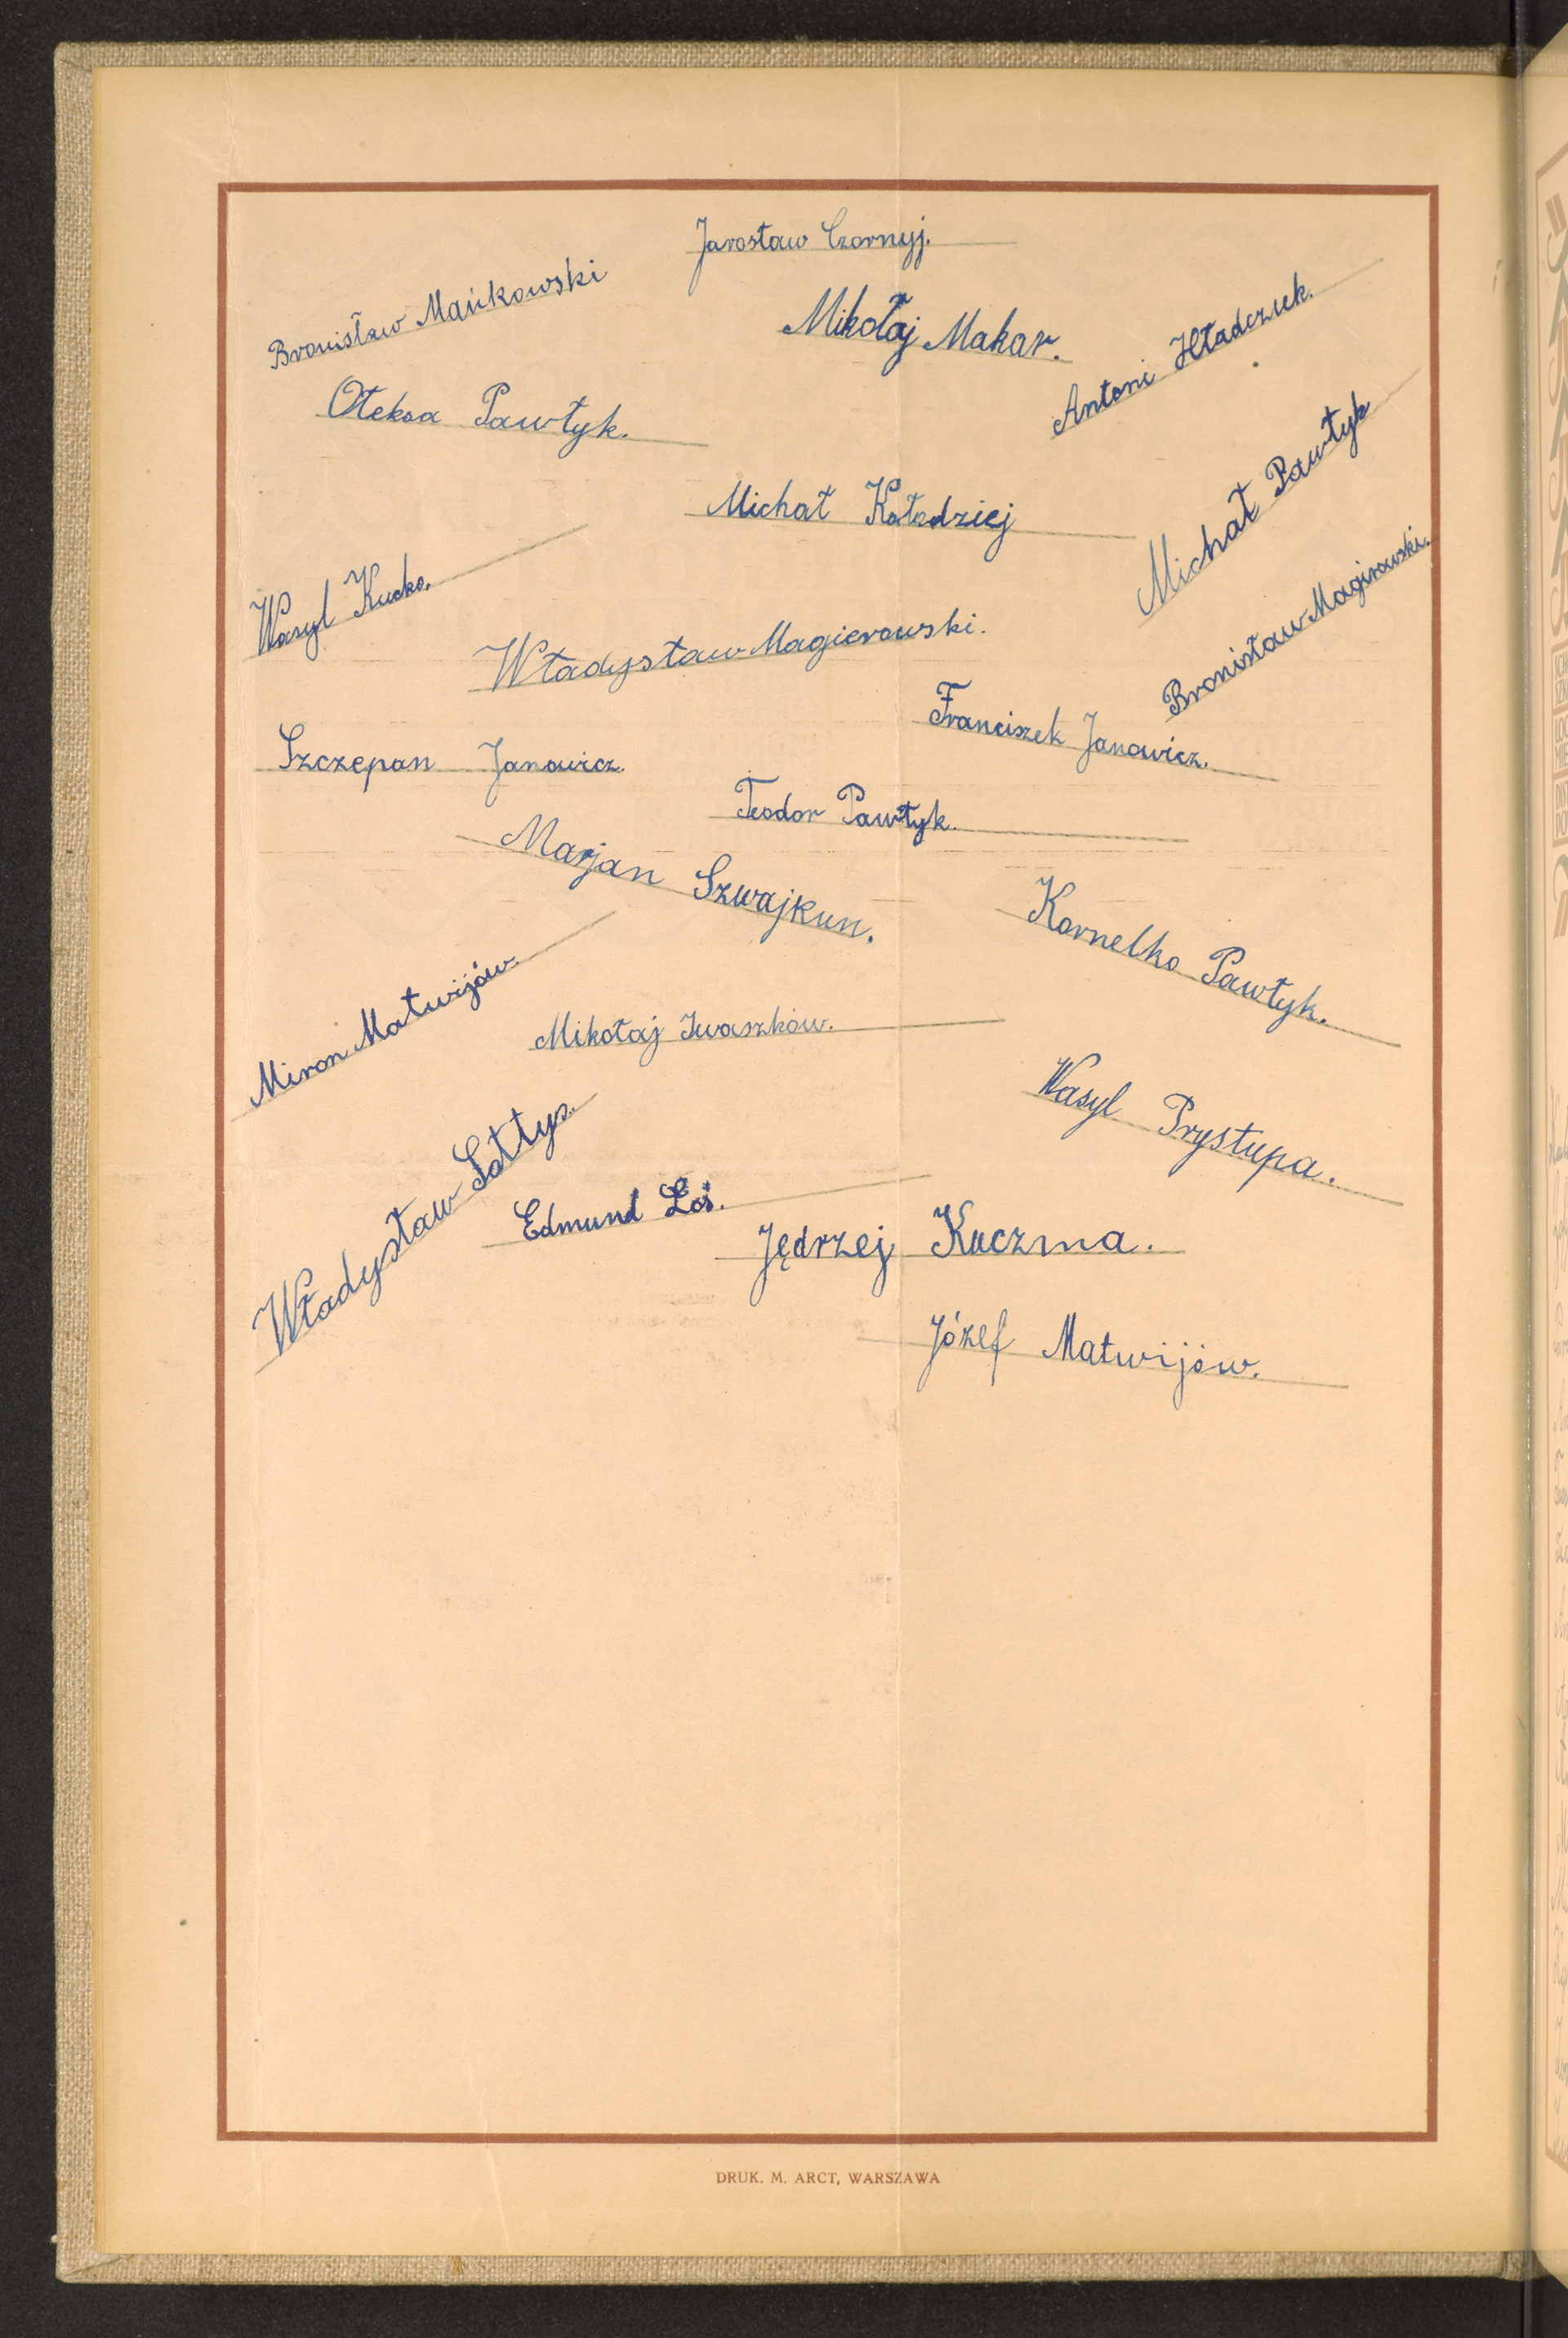 Jarosław Czornyj.
Bronisław Mańkowski
Mikołaj Makar.
Antoni Hładczuk.
Ołeksa Pawłyk.
Michał Pawłyk
Michał Kołodziej
Wasyl Kucko.
Władysław Magierowski.
Bronisław Magirowski.
Franciszek Janowicz.
Szczepan Janowicz.
Teodor Pawłyk.
Marjan Szwajkun.
Kornelko Pawłyk.
Miron Matwijów.
Mikołaj Iwaszków.
Wasyl Prystupa.
Władysław Sołtys.
Edmund Łoś.
Jędrzej Kuczma.
Józef Matwijów.
DRUK. M. ARCT, WARSZAWA